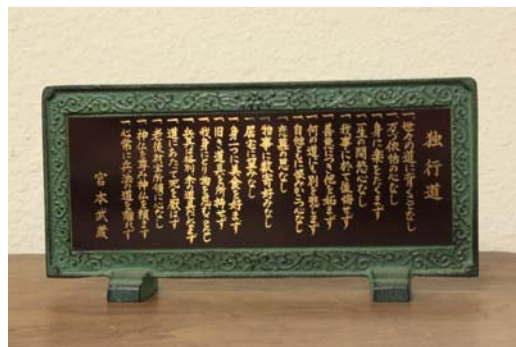 独行道
一、世々の道に背くことなし
一、万つ依怙の心なし
一、身に楽をたくます
一、一生の間欲心なし
一、我事に於て後悔せす
一、善悪につき他を妬ます
一、何の道にも別を悲します
一、自他ともに恨みかこつ心なし
一、恋慕の思なし
一、物事に数奇好みなし
一、居宅に望みなし
一、身一つに美食を好ます
一、旧き道具を所持せす
一、我身にとり物を忌むことなし
一、兵具は格別余の道具たしなます
一、道にあたって死を厭はす
一、老後財宝所領に心なし
一、神仏を尊み神仏を頼ます
一、心常に兵法の道を離れす
宮本武蔵